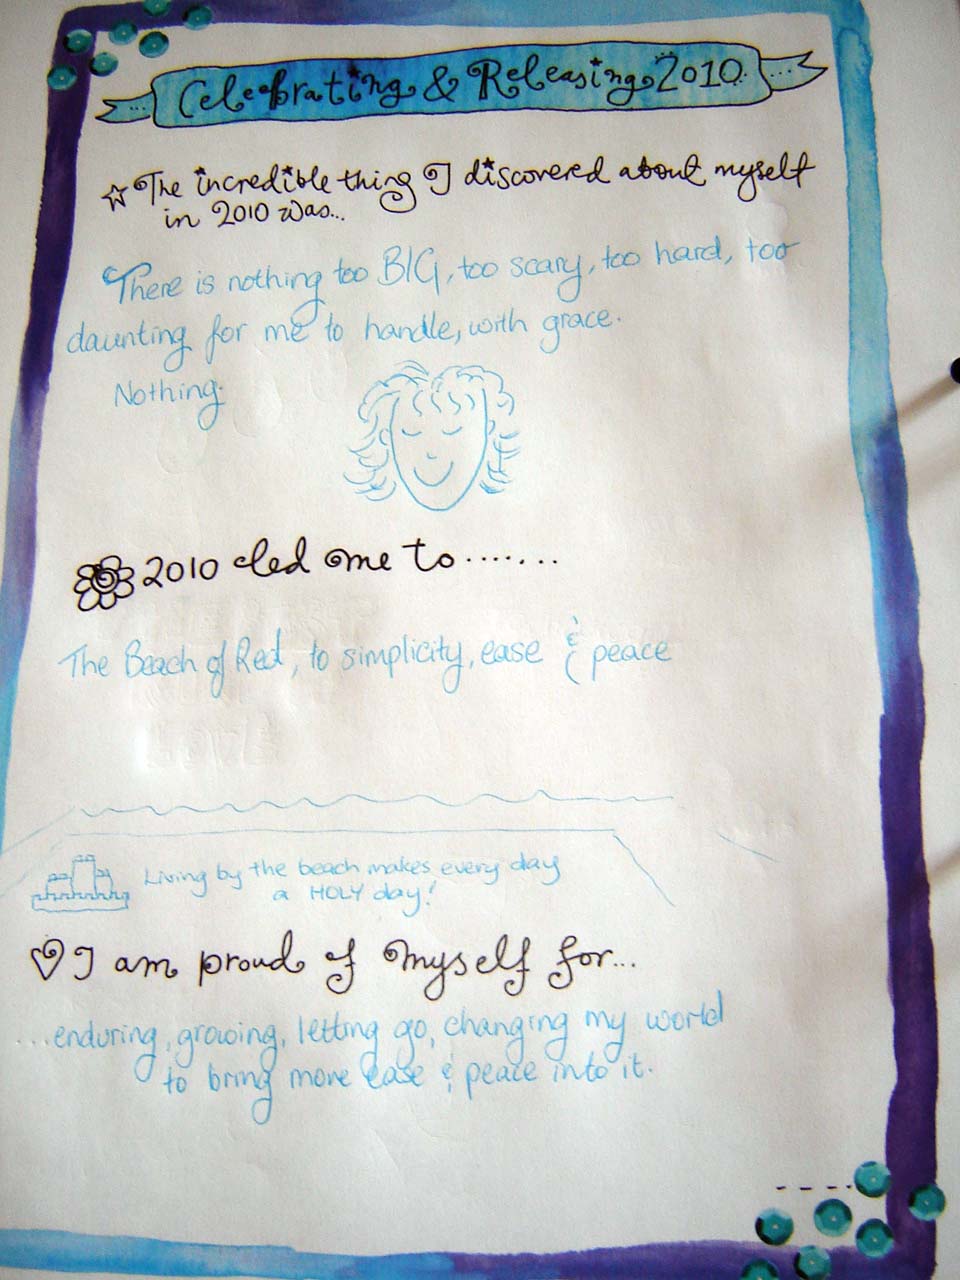 Celebrating & Releasing 2010
The incredible thing I discovered about myself
in 2010 was...
There is nothing too BIG, too scary, too hard, too
daunting for me to handle, with grace.
Nothing.
2010 led me to.......
The Beach of Red, to simplicity, ease & peace
Living by the beach makes every day
a HOLY day!
I am proud of myself for...
...enduring, growing, letting go, changing my world
to bring more ease & peace into it.